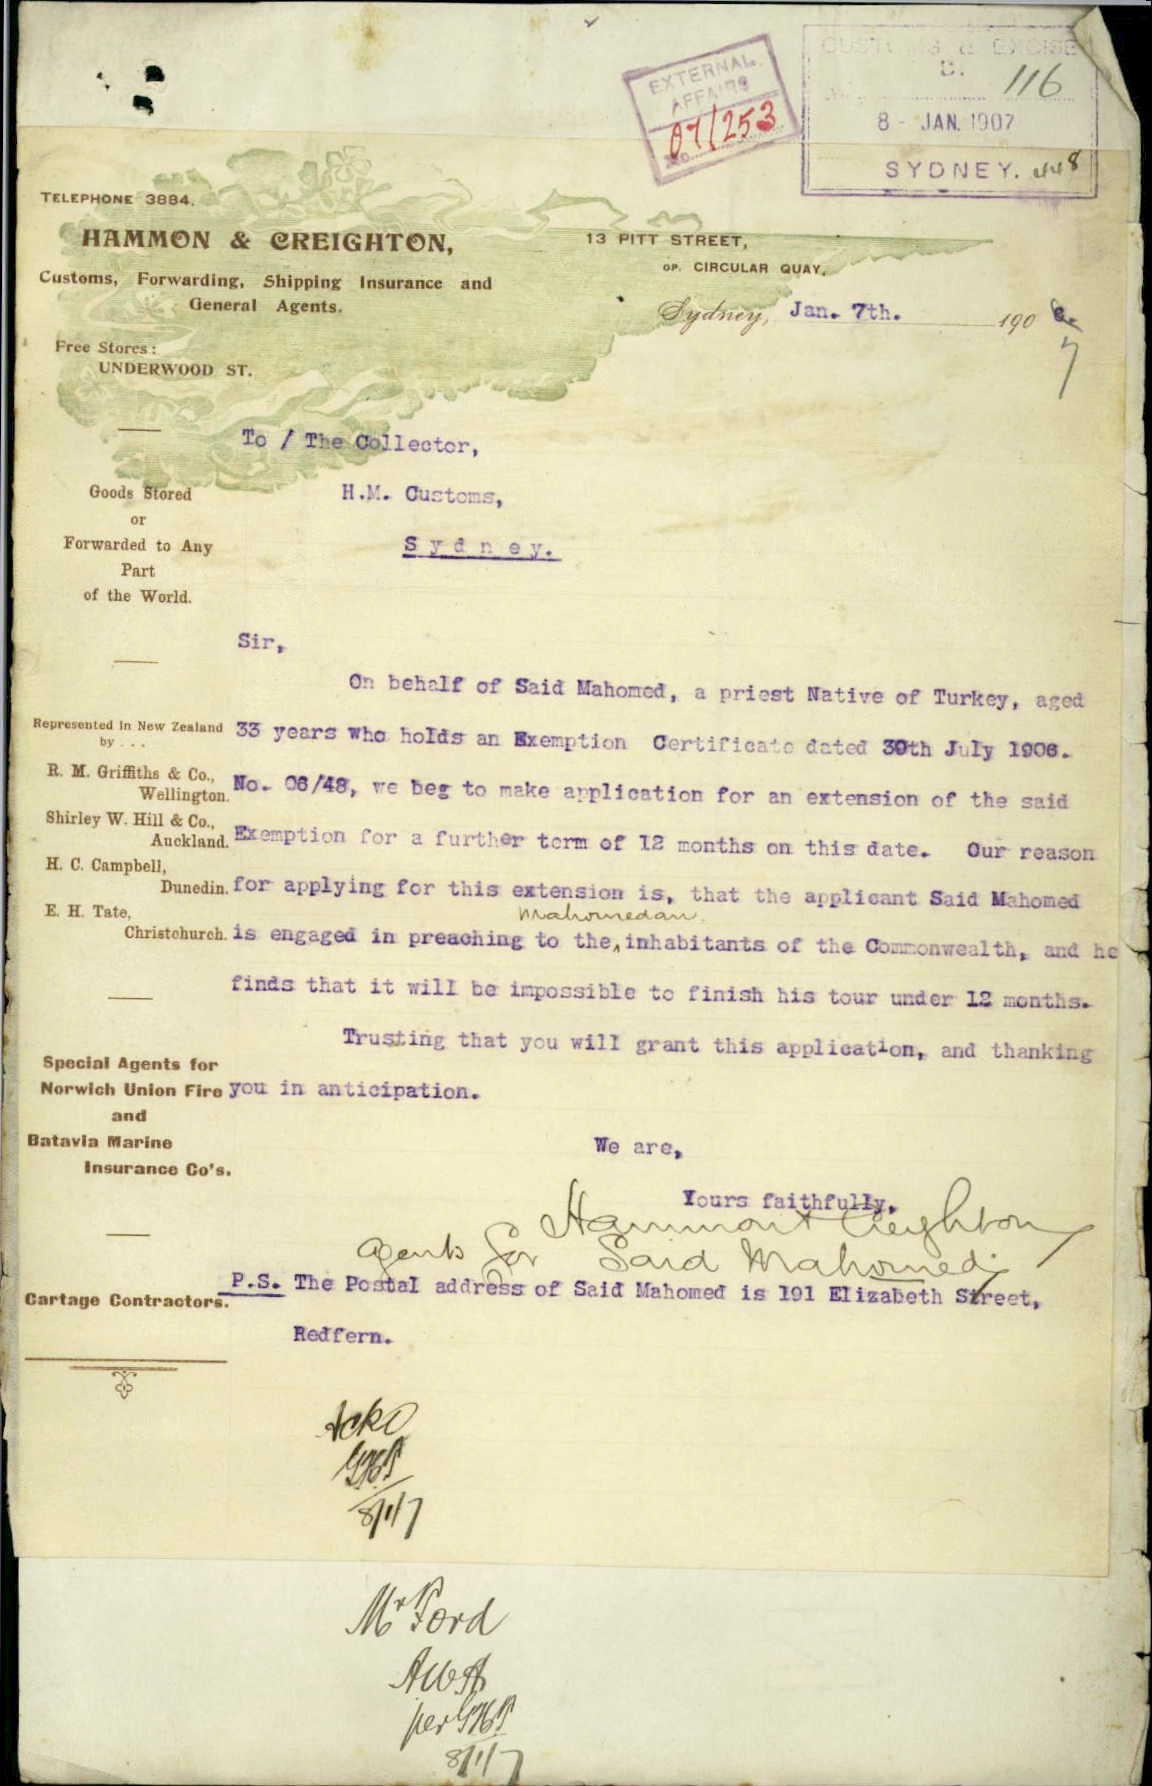 EXTERNAL
AFFAIRS
No. 07/253
CUSTOMS & EXCISE
116
8 - JAN. 1907
SYDNEY.
TELEPHONE 3884.
HAMMON & CREIGHTON,
Customs, Forwarding, Shipping Insurance and
General Agents.
13 PITT STREET,
OP. CIRCULAR QUAY.
Sydney, Jan. 7th. 190
7
Free Stores:
UNDERWOOD ST.
To / The Collector,
H.M. Customs,
Sydney.
Goods Stored
or
Forwarded to Any
Part
of the World.
Represented in New Zealand
by . . .
R. M. Griffiths & Co.,
Wellington.
Shirley W. Hill & Co.,
Auckland.
H. C. Campbell,
Dunedin.
E. H. Tate,
Christchurch.
Special Agents for
Norwich Union Fire
and
Batavia Marine
Insurance Co's.
Cartage Contractors.
Sir,
On behalf of Said Mahomed, a priest Native of Turkey, aged
33 years who holds an Exemption Certificate dated 30th July 1906.
No. 06/48, we beg to make application for an extension of the said
Exemption for a further term of 12 months on this date. Our reason
for applying for this extension is, that the applicant Said Mahomed
Mahomedan
is engaged in preaching to the inhabitants of the Commonwealth, and he
finds that it will be impossible to finish his tour under 12 months.
Trusting that you will grant this application, and thanking
you in anticipation.
We are,
Yours faithfully,
Hammon & Creighton
agents for Said Mahomed
P.S. The Postal address of Said Mahomed is 191 Elizabeth Street,
Redfern.
8/1/7
Mr Ford
per
8/1/7